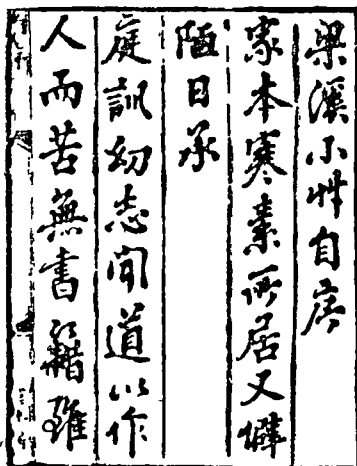 梁溪小艸自序
家本寒素所居又僻
陋日承
庭訓幼志聞道以作
人而苦無書籍雖